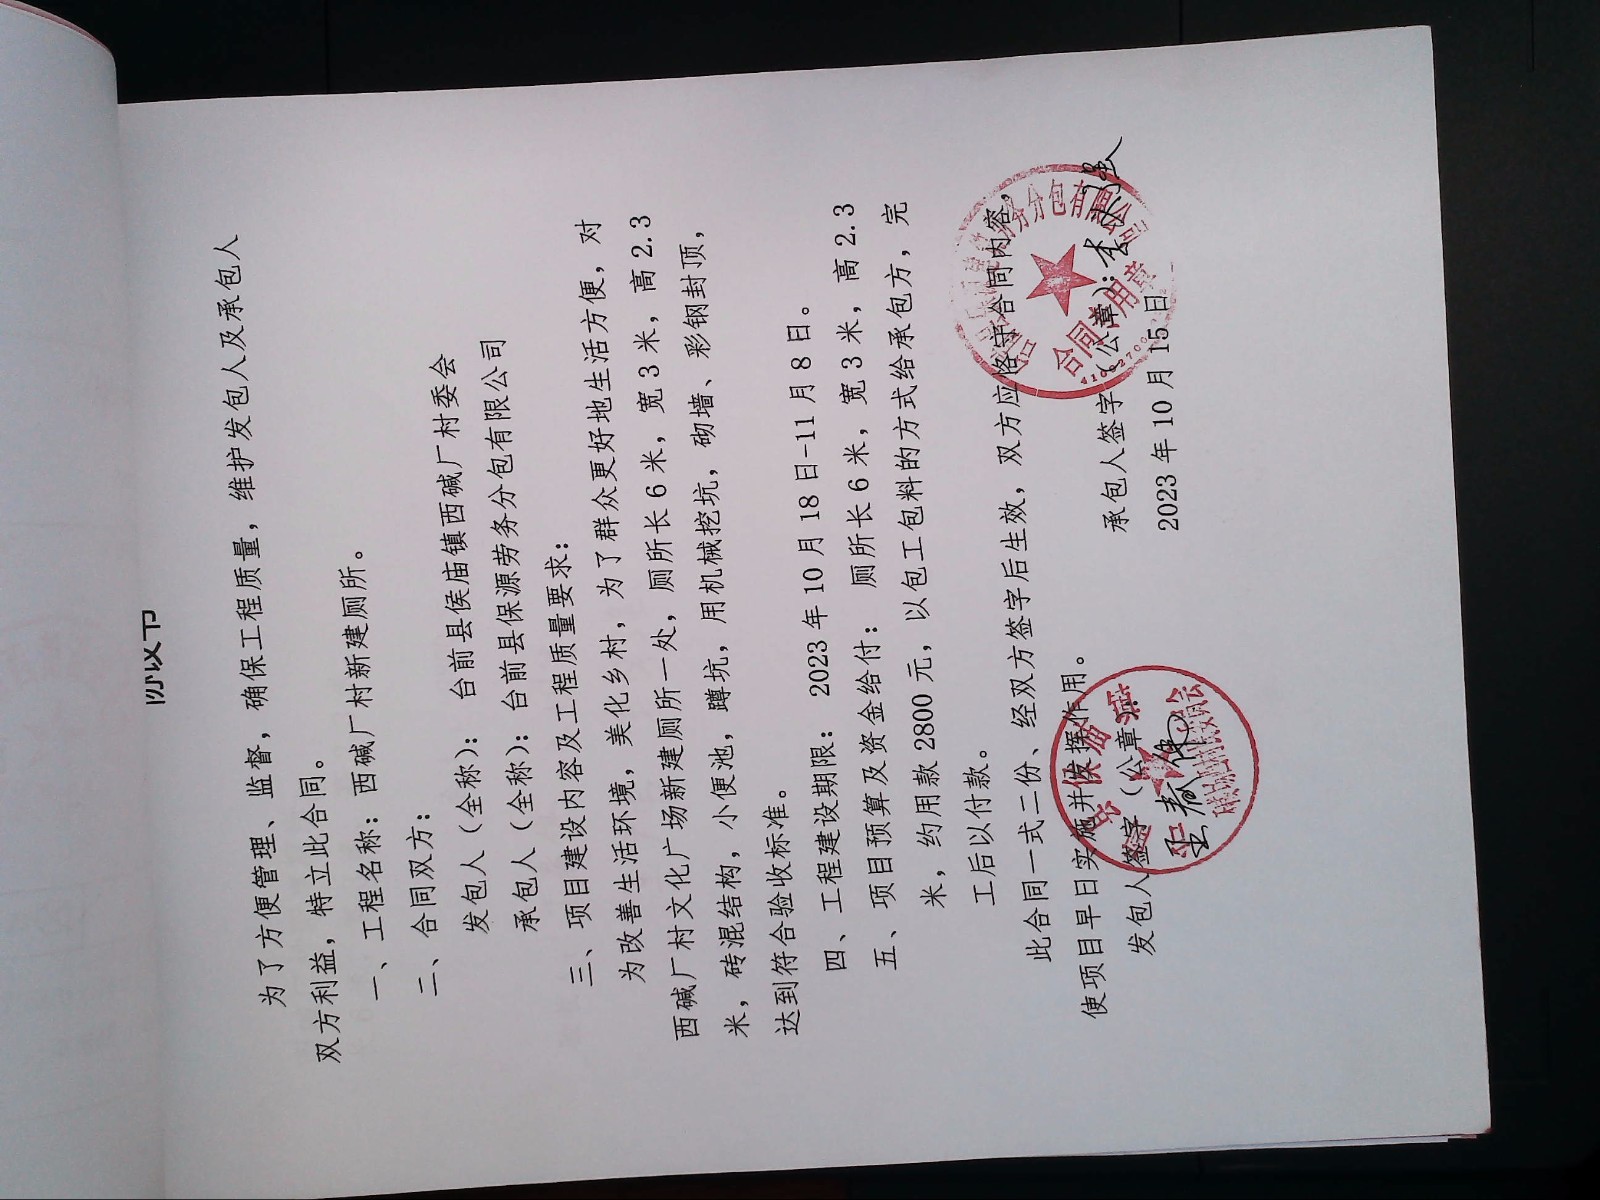 协议书
为了方便管理、监督，确保工程质量，维护发包人及承包人
双方利益，特立此合同。
一、工程名称：西碱厂村新建厕所。
二、合同双方：
发包人（全称）：台前县侯庙镇西碱厂村委会
承包人（全称）：台前县保源劳务分包有限公司
三、项目建设内容及工程质量要求：
为改善生活环境，美化乡村，为了群众更好地生活方便，对
西碱厂村文化广场新建厕所一处，厕所长6米，宽3米，高2.3
米，砖混结构，小便池，蹲坑，用机械挖坑，砌墙、彩钢封顶，
达到符合验收标准。
四、工程建设期限：2023年10月18日-11月8日。
五、项目预算及资金给付：厕所长6米，宽3米，高2.3
米，约用款2800元，以包工包料的方式给承包方，完
工后以付款。
此合同一式二份、经双方签字后生效，双方应恪守合同内容，
使项目早日实施并发挥作用。
发包人签字（公章）： 承包人签字（公章）：李
2023年10月15日
务分包有限公司
合同专用章